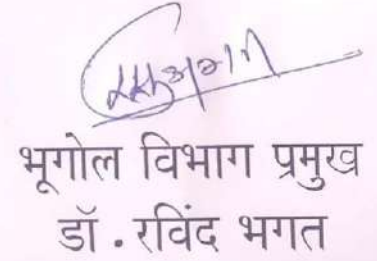 भूगोल विभाग प्रमुख
डॉ . रविंद भगत